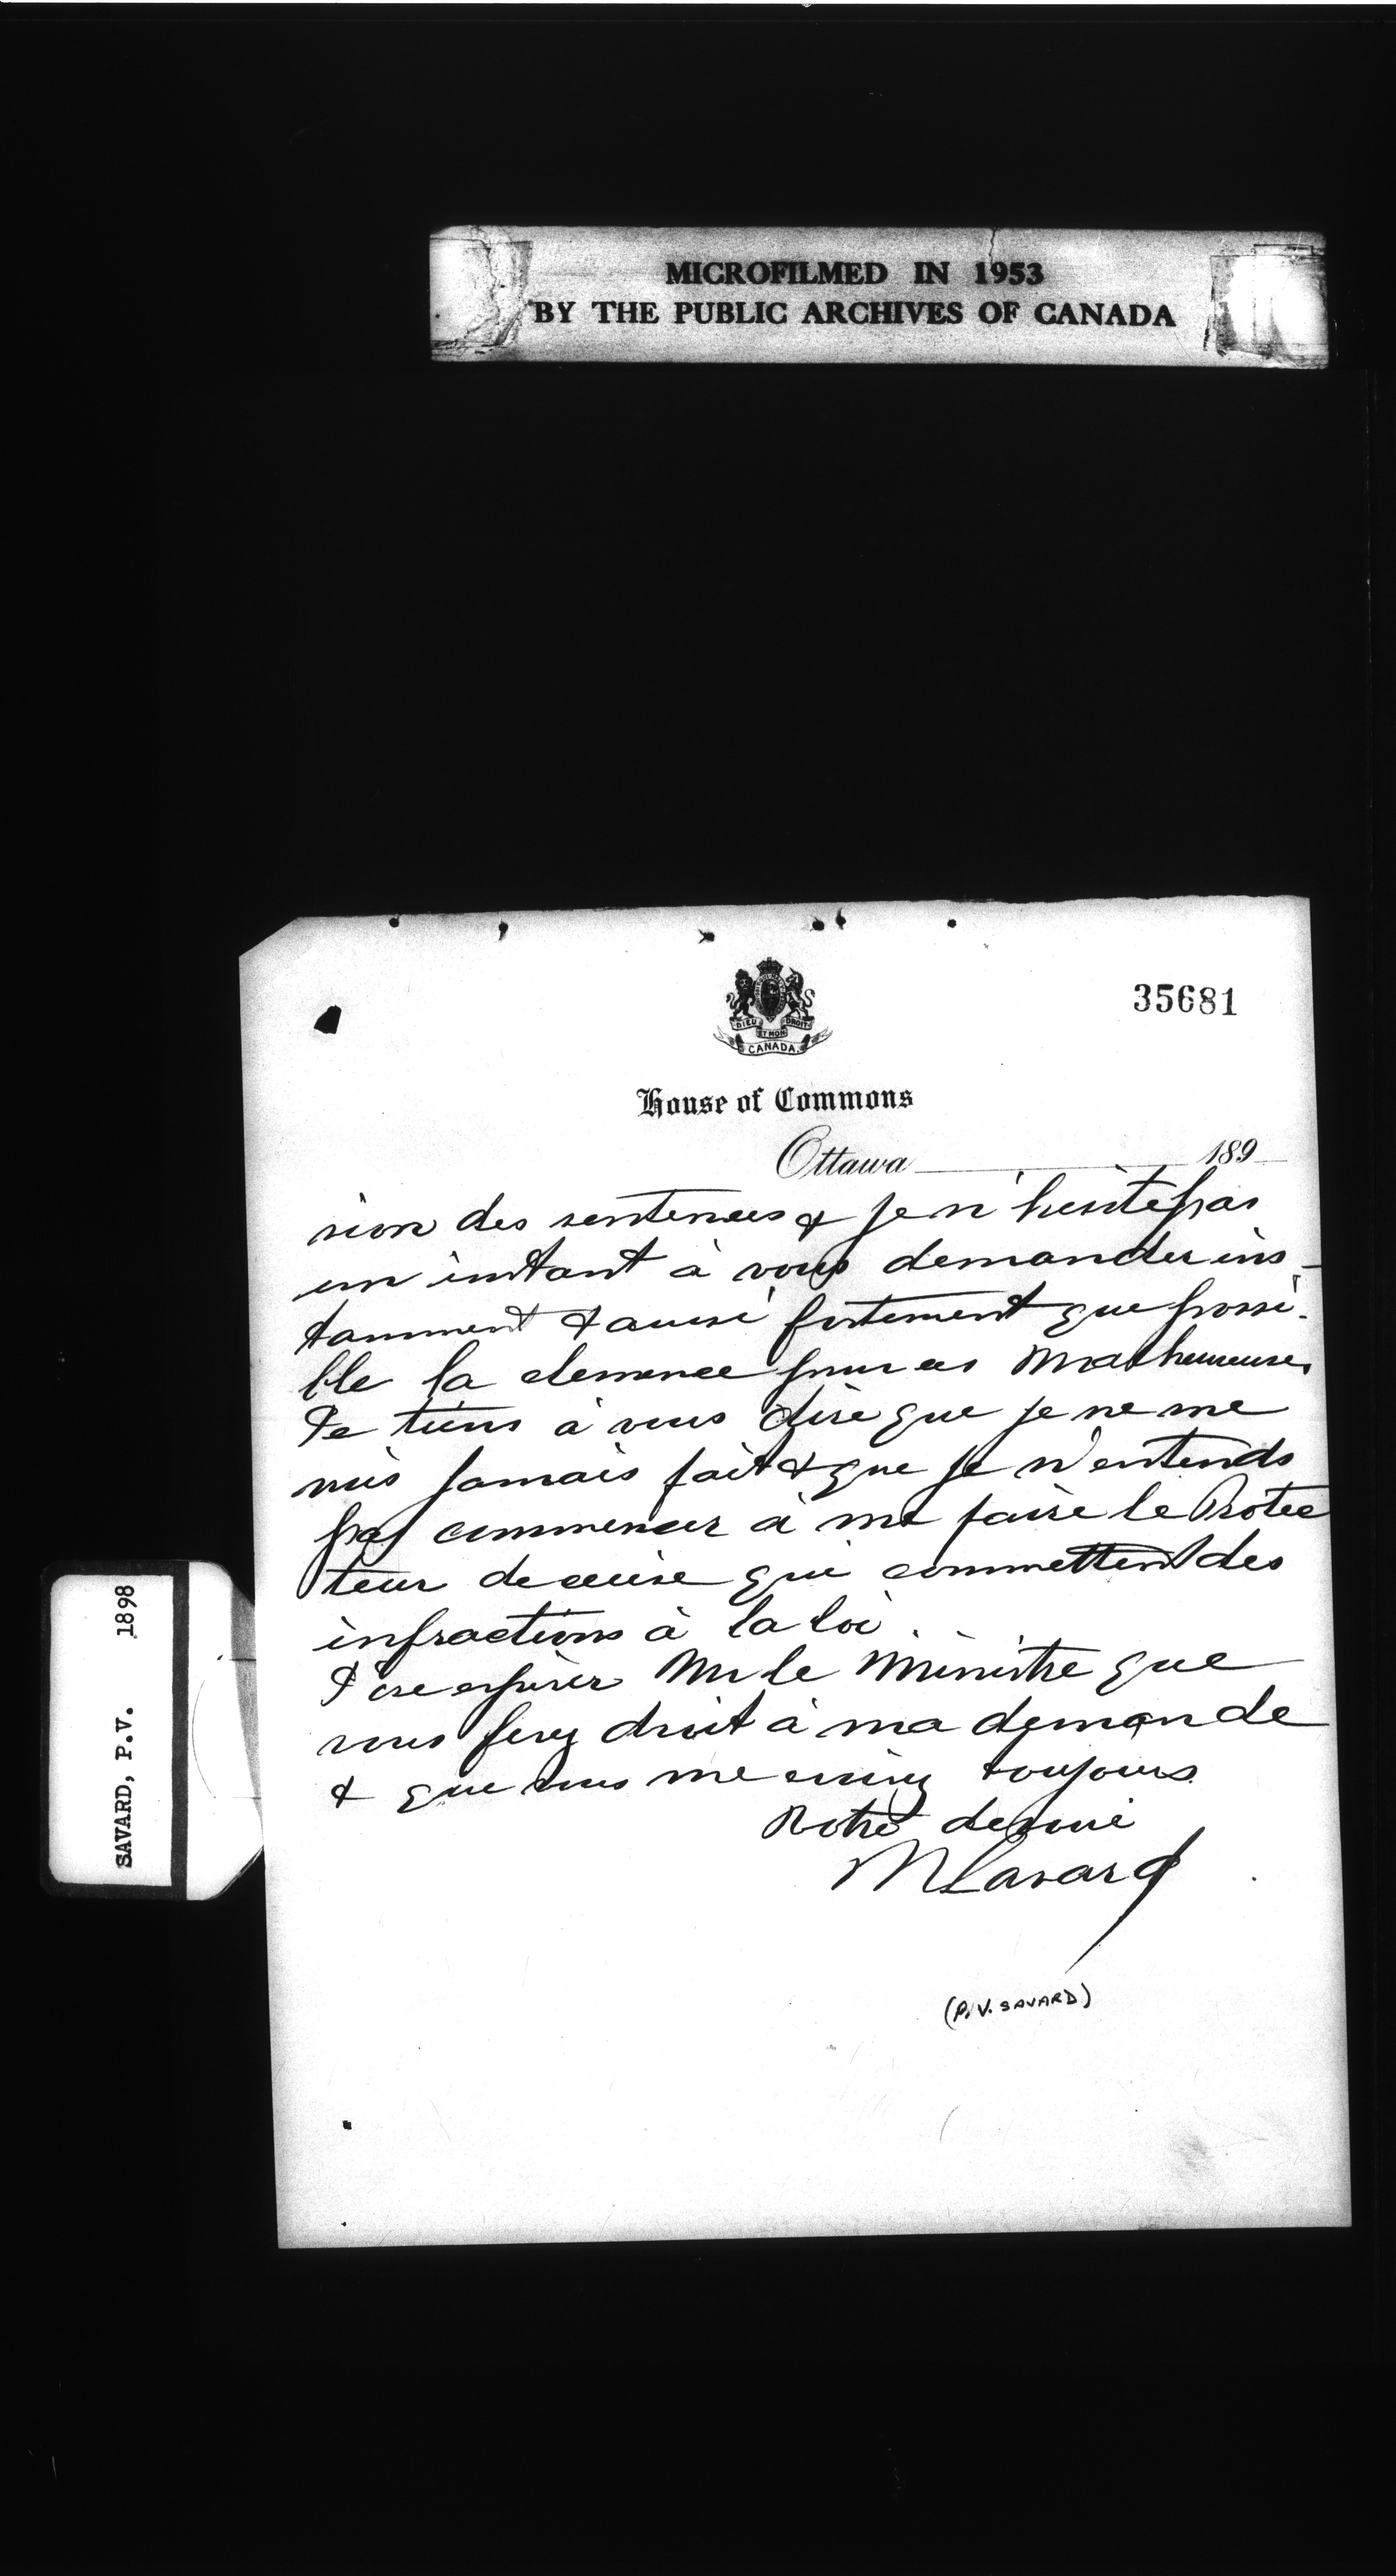 MICROFILMED IN 1953
BY THE PUBLIC ARCHIVES OF CANADA
35681
DIEU ET MON DROIT
CANADA
House of Commons
Ottawa 189
sion des sentences & je n'hesite pas
un instant à vous demander ins-
tamment & aussi fortement que possi-
ble la clemence pour ces malheureuses
Je tiens à vous dire que je ne me
suis jamais fait & que je n'entends
pas commencer à me faire le Protec
teur de ceux qui commettent des
infractions à la loi.
J'ose espérer Mr le Ministre que
vous ferez droit à ma demande
& que vous me croirez toujours
Votre devoué
Savard
(P.V. SAVARD)
SAVARD, P.V. 1898